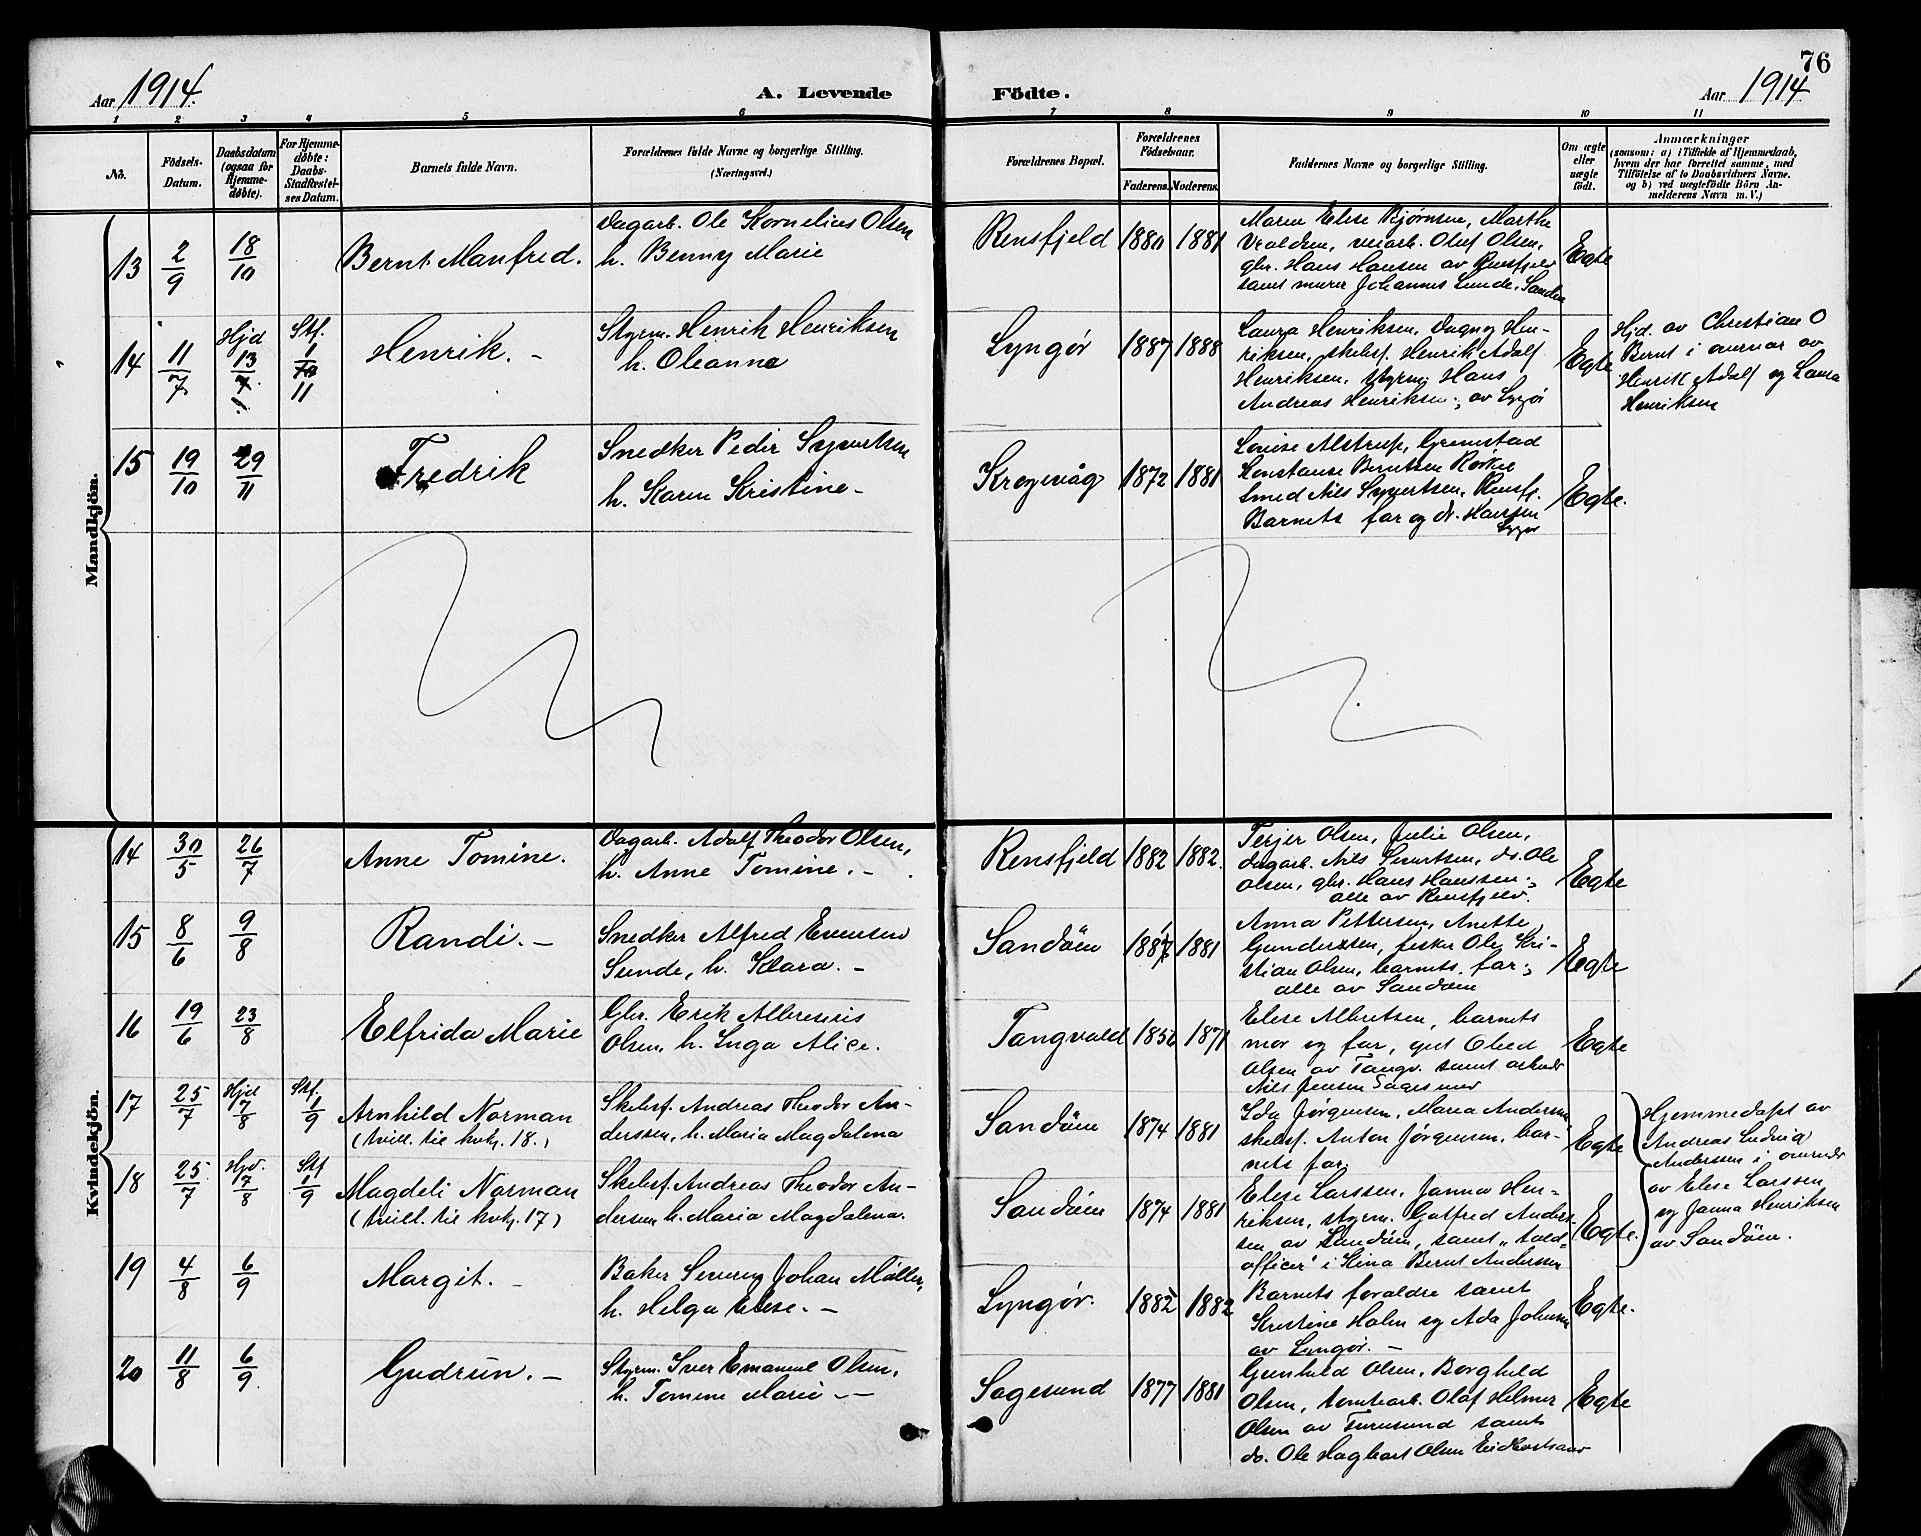 76
Aar 1914.
A. Levende Födte.
Aar 1914
1 2 3 4 5 6 7 8 9 10 11
No.
Födsels-
Datum.
Daabsdatum
(ogsaa for
Hjemme-
döbte).
For Hjemme-
döbte:
Daabs-
Stadfæstel-
ses Datum.
Barnets fulde Navn.
Forældrenes fulde Navne og borgerlige Stilling.
(Næringsvei.)
Forældrenes Bopæl.
Forældrenes
Födselsaar.
Faderens. Moderens.
Faddernes Navne og borgerlige Stilling.
Om ægte
eller
uægte
födt.
Anmærkninger
(saasom: a) i Tilfælde af Hjemmedaab,
hvem der har forrettet samme, med
Tilföielse af to Daabsvidners Navne.
og b) ved uægtefödte Börn An-
melderens Navn m. V.)
Mandkjön.
13 2/9 18/10 Bernt Manfred.
Dagarb. Ole Kornelius Olsen
h. Benny Marie
Rensfjeld 1880 1881
Maren Elise Bjørnsen, Marthe
Olaf Olsen,
gbr. Hans Hansen av Rensfjeld
samt murer Johannes Lunde, Sanden
Egte
14 11/7 Hjd 13/7. Stf. 1/11 Henrik. -
Styrm. Henrik Henriksen
h. Oleanna
Lyngør 1887 1888
Laura Henriksen, Dagny Hen-
riksen, skibsf. Henrik Adolf
Henriksen, styrm. Hans
Andreas Henriksen; av Lyngør
Egte
Hjd. av Christian O
Bernt i overvær av
Henrik Adolf og Laura
Henriksen
15 19/10 29/11 Fredrik
Snedker Peder Syvertsen
h. Karen Kristine-
Krogvåg 1872 1881
Louise Alstrup, Grimstad
Konstanse Berntsen
Smed Nils Syvertsen, Rensfj.
Barnets far og dr. Hansen
Lyngør
Egte.
Kvindekjön.
14 30/5 26/7 Anne Tomine.
Dagarb. Adolf Theodor Olsen,
h. Anne Tomine. -
Rensfjeld 1882 1882.
Terjer Olsen, Julie Olsen,
dagarb. Nils Sivertsen, do. Ole
Olsen, gbr. Hans Hanssen;
alle av Rensfjeld.
Egte
15 8/6 9/8 Randi. -
Snedker Alfred Evensen
Sunde, h. Klara. -
Sandöen 1887 1881
Anna Pettersen, Anette
Gunderssen, fisker Ole Kri-
stian Olsen, barnets far;
alle av Sandöen
Egte
16 19/6 23/8 Elfrida Marie
Gbr. Erik Albresius
Olsen, h. Inga Alice.
Tangvald 1871
Elise Albretsen, barnets
mor og far, Obed
Olsen av Tangv. samt
Nils Jensen Sagesund
Egte
17 25/7 Hjd 7/8 Stf. 1/9 Arnhild Norman
(tvill. til kvkj. 18.)
Skibsf. Andreas Theodor An-
derssen, h. Maria Magdalena
Sandöen 1874 1881
Ida Jørgensen, Maria Andersen
skibsf. Anton Jørgensen, bar-
nets far
Egte
Hjemmedøpt av
Andreas Ludvig
Andersen i overvær
18 25/7 Hjd. 7/8 Stf 1/9 Magdeli Norman
(tvill. til kvkj. 17)
Skibsf. Andreas Theodor An-
dersen h. Maria Magdalena.
Sandöen 1874 1881
Elise Larssen, Janna Hen-
riksen, styrm. Gotfred Anders-
sen av Sandöen, samt "told-
officer" i Kina Bernt Andersen
Egte.
av Elise Larssen
og Janna Henriksen
av Sandöen.
19 4/8 6/9 Margit. -
Baker Severin Johan Möller,
h. Helga Elise. -
Lyngør. 1882 1882
Barnets foraldre samt
Kristine Holm og Ada Johnsen
av Lyngør. -
Egte.
20 11/8 6/9. Gudrun. -
Styrm. Iver Emanuel Olsen,
h. Tomine Marie -
Sagesund 1877 1881
Gunhild Olsen, Borghild
Olsen, tomtearb. Olaf Helmer
Olsen av samt
do. Ole Hagbart Olsen
Egte